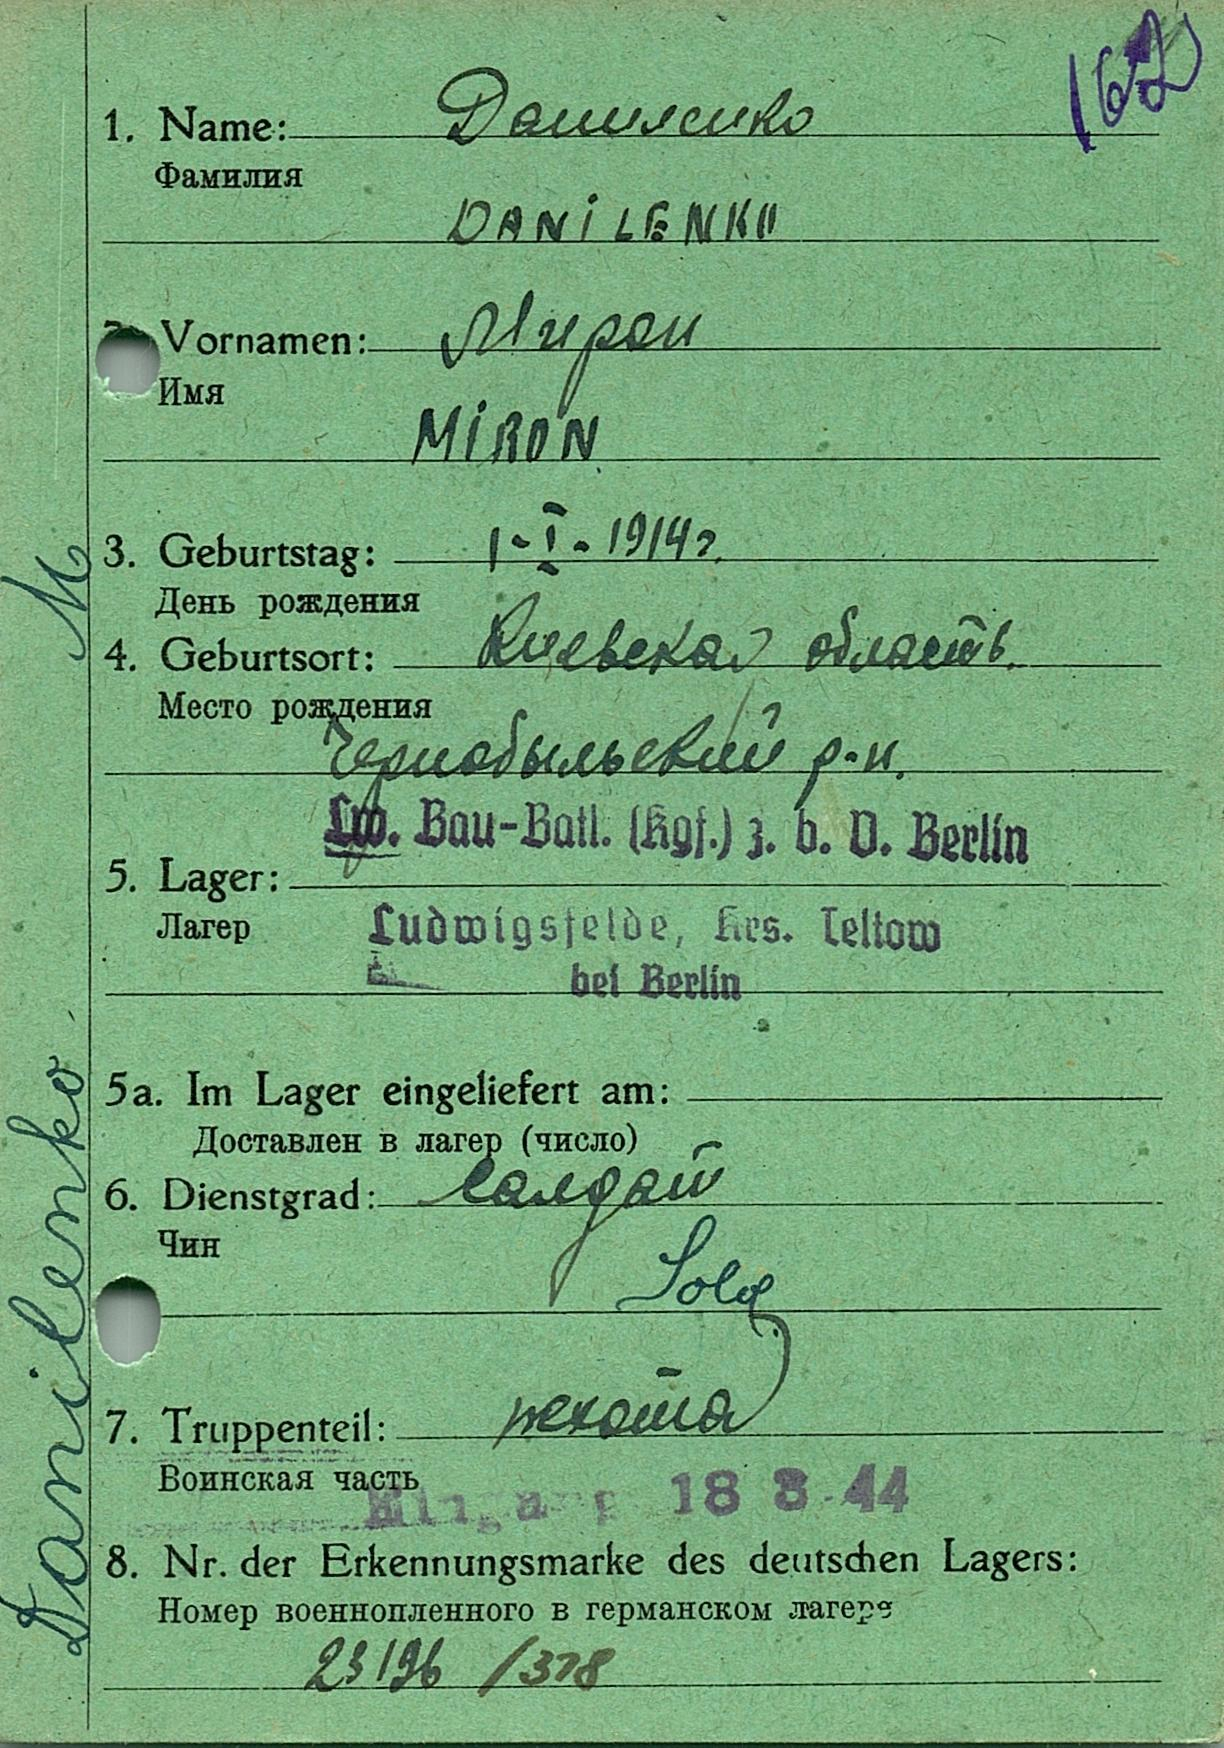 162
1. Name: Даниленко
Фамилия
DANiLENKO
Vornamen: Мирон
Имя
MiRON
3. Geburtstag: 1-I-1914 г.
День рождения
4. Geburtsort: Киевская область.
Место рождения
Чернобыльский р-н.
Lw. Bau-Batl. (Kgf.) z. b. V. Berlin
5. Lager:
Лагер
Ludwigsfelde, Krs. Teltow
bei Berlin
5a. Im Lager eingeliefert am:
Доставлен в лагер (число)
6. Dienstgrad: Салдат
Чин
Sold
7. Truppenteil: пехота
Воинская часть
Eingang 18 3 44
8. Nr. der Erkennungsmarke des deutschen Lagers:
Номер военнопленного в германском лагере
23196 /378
Danilenko M